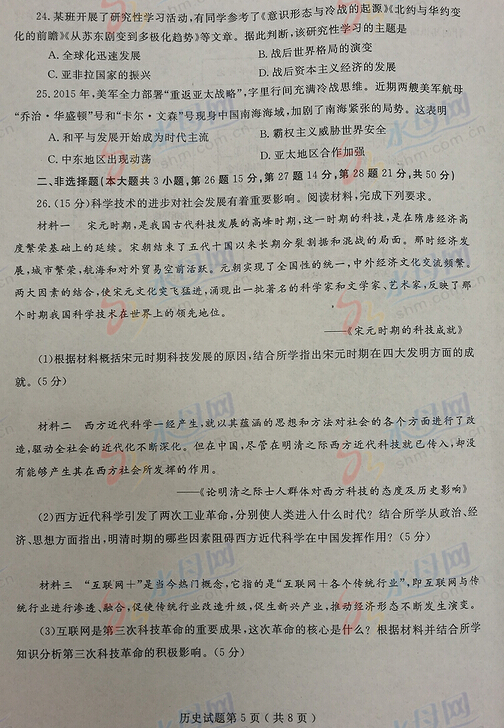 24.某班开展了研究性学习活动,有同学参考了《意识形态与冷战的起源》《北约与华约变
化的前瞻》《从苏东剧变到多极化趋势》等文章。据此判断,该研究性学习的主题是
A.全球化迅速发展 B.战后世界格局的演变
C.亚非拉国家的振兴 D.战后资本主义经济的发展
25.2015年,美军全力部署“重返亚太战略”,字里行间充满冷战思维。近期两艘美军航母
“乔治·华盛顿”号和“卡尔·文森”号现身中国南海海域,加剧了南海紧张的局势。这表明
A.和平与发展开始成为时代主流 B.霸权主义威胁世界安全
C.中东地区出现动荡 D.亚太地区合作加强
二、非选择题(本大题共3小题,第26题15分,第27题14分,第28题21分,共50分)
26.(15分)科学技术的进步对社会发展有着重要影响。阅读材料,完成下列要求。
材料一 宋元时期,是我国古代科技发展的高峰时期,这一时期的科技,是在隋唐经济高
度繁荣基础上的延续。宋朝结束了五代十国以来长期分裂割据和混战的局面。那时经济发
展,城市繁荣,航海和对外贸易空前活跃。元朝实现了全国性的统一,中外经济文化交流频繁。
两大因素的结合,使宋元文化突飞猛进,涌现出一批著名的科学家和文学家、艺术家,反映了那
个时期我国科学技术在世界上的领先地位。
——《宋元时期的科技成就》
(1)根据材料概括宋元时期科技发展的原因,结合所学指出宋元时期在四大发明方面的成
就。(5分)
材料二 西方近代科学一经产生,就以其蕴涵的思想和方法对社会的各个方面进行了改
造,驱动全社会的近代化不断深化。但在中国,尽管在明清之际西方近代科技就已传入,却没
有能够产生其在西方社会所发挥的作用。
——《论明清之际士人群体对西方科技的态度及历史影响》
(2)西方近代科学引发了两次工业革命,分别使人类进入什么时代?结合所学从政治、经
济、思想方面指出,明清时期的哪些因素阻碍西方近代科学在中国发挥作用?(5分)
材料三 “互联网+”是当今热门概念,它指的是“互联网+各个传统行业”,即互联网与传
统行业进行渗透、融合,促使传统行业改造升级,促生新兴产业,推动经济形态不断发生演变。
(3)互联网是第三次科技革命的重要成果,这次革命的核心是什么?根据材料并结合所学
知识分析第三次科技革命的积极影响。(5分)
历史试题第5页(共8页)